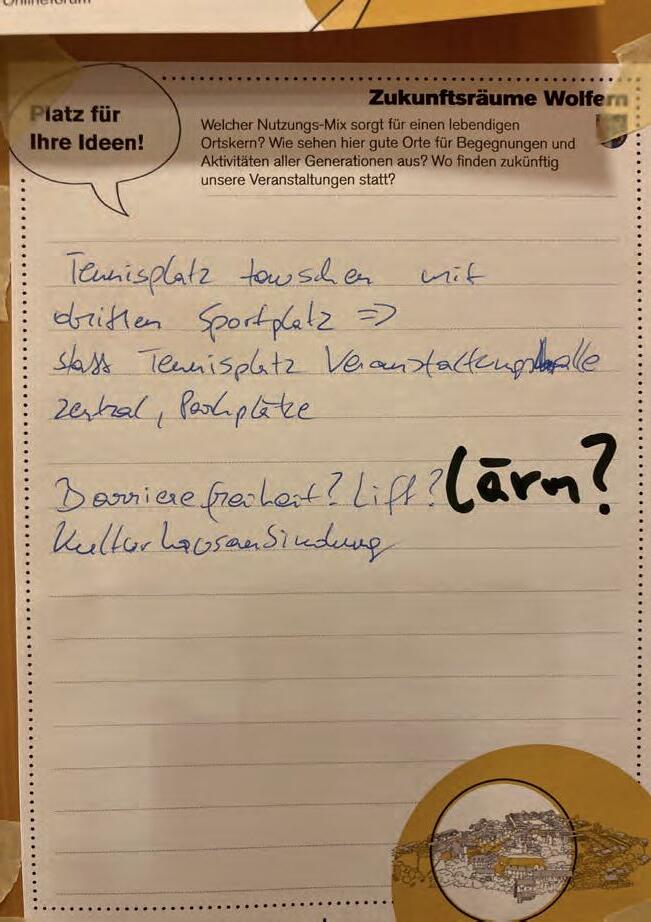 Onlineforum
Platz für
Ihre Ideen!
Zukunftsräume Wolfern
Welcher Nutzungs-Mix sorgt für einen lebendigen
Ortskern? Wie sehen hier gute Orte für Begegnungen und
Aktivitäten aller Generationen aus? Wo finden zukünftig
unsere Veranstaltungen statt?
Tennisplatz tauschen mit
dritten Sportplatz =>
statt Tennisplatz Veranstaltungshalle
zentral, Parkplätze
Barrierefreiheit? Lift? Lärm?
Kulturhausanbindung